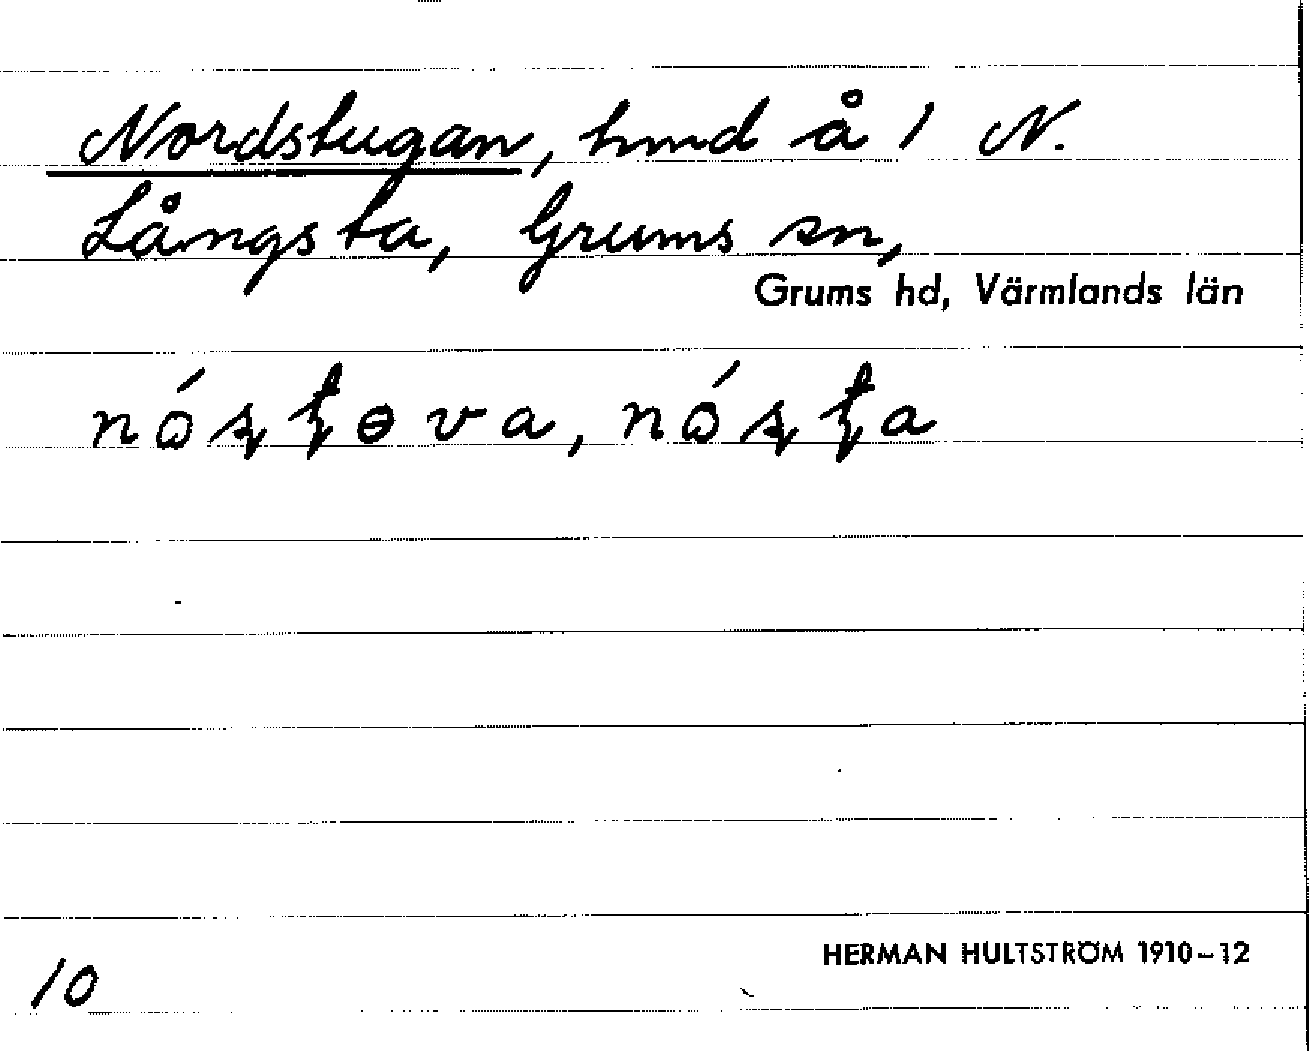 Nordstugan, hmd å 1 N.
Långsta, Grums sn,
Grums hd, Värmlands län
nǫ́ʂʈɵva, nǫ́ʂʈa
HERMAN HULTSTRÖM 1910–12
10